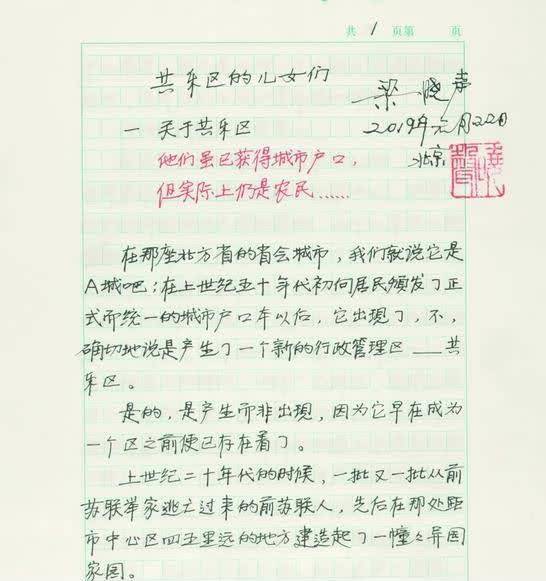 共 1 页第 页
共乐区的儿女们
梁晓声
2019年元月22日
北京
一 关于共乐区
他们虽已获得城市户口，
但实际上仍是农民……
在那座北方省的省会城市，我们就说它是
A城吧；在上世纪五十年代初向居民颁发了正
式而统一的城市户口本以后，它出现了，不，
确切地说是产生了一个新的行政管理区——共
乐区。
是的，是产生而非出现，因为它早在成为
一个区之前便已存在着了。
上世纪二十年代的时候，一批又一批从前
苏联举家逃亡过来的前苏联人，先后在那处距
市中心区四五里远的地方建造起了一幢々异国
家园。